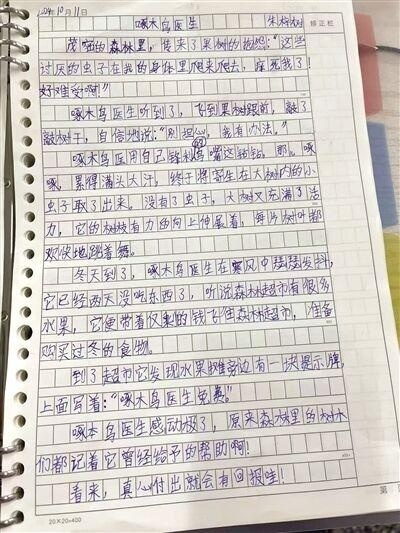 2024年10月11日
啄木鸟医生
修正栏
茂密的森林里，传来了果树的抱怨：“这些
讨厌的虫子在我的身体里爬来爬去，痒死我了！
好难受啊”
啄木鸟医生听到了，飞到果树跟前，敲了
敲树干，自信地说：“别担心，我有办法。”
啄木鸟医用自己锋利的嘴这钻钻，那
啄，累得满头大汗，终于将寄生在大树内的小
虫子取了出来。没有了虫子，大树又充满了活
力，它的树枝有力的向上伸展着，每片树叶都
欢快地跳着舞。
冬天到了，啄木鸟医生在寒风中瑟瑟发抖，
它已经两天没吃东西了，听说森林超市有很多
水果，它便带着仅剩的钱飞往森林超市，准备
购买过冬的食物。
到了超市它发现水果摊旁边有一块提示牌，
上面写着：“啄木鸟医生免费。”
啄木鸟医生感动极了，原来森林里的树木
们都记着它曾经给予的帮助啊！
看来，真心付出就会有回报哇！
20×20=400
第